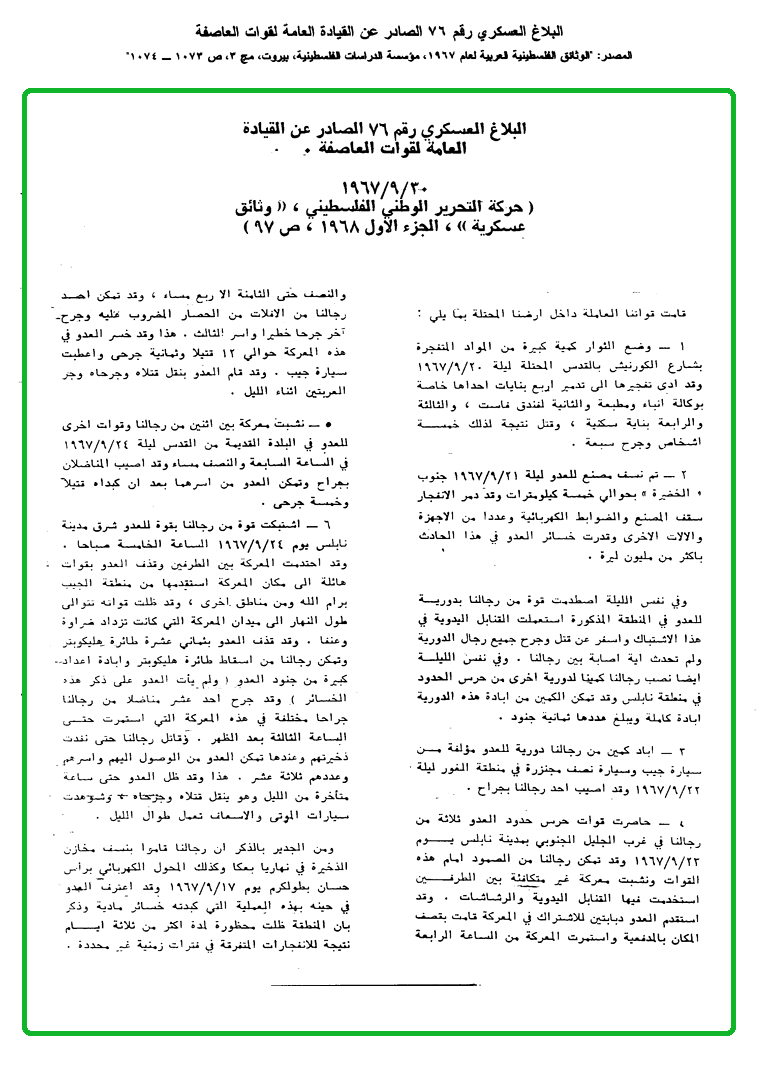 البلاغ العسكري رقم ٧٦ الصادر عن القيادة العامة لقوات العاصفة
المصدر: "الوثائق الفلسطينية العربية لعام ١٩٦٧، مؤسسة الدراسات الفلسطينية، بيروت، مج ٣، ص ١٠٧٣ ــ ١٠٧٤"
البلاغ العسكري رقم ٧٦ الصادر عن القيادة
العامة لقوات العاصفة
١٩٦٧/٩/٣٠
( حركة التحرير الوطني الفلسطيني ، « وثائق
عسكرية » ، الجزء الأول ١٩٦٨ ، ص ٩٧ )
قامت قواتنا العاملة داخل ارضنا المحتلة بما يلي :
١ ــ وضع الثوار كمية كبيرة من المواد المتفجرة
بشارع الكورنيش بالقدس المحتلة ليلة ١٩٦٧/٩/٢٠
وقد ادى تفجيرها الى تدمير اربع بنايات احداها خاصة
بوكالة انباء ومطبعة والثانية لفندق فاست ، والثالثة
والرابعة بناية سكنية ، وقتل نتيجة لذلك خمسة
اشخاص وجرح سبعة .
٢ ــ تم نسف مصنع للعدو ليلة ١٩٦٧/٩/٢١ جنوب
« الخضيرة » بحوالي خمسة كيلومترات وقد دمر الانفجار
سقف المصنع والضوابط الكهربائية وعددا من الاجهزة
والالات الاخرى وقدرت خسائر العدو في هذا الحادث
باكثر من مليون ليرة .
وفي نفس الليلة اصطدمت قوة من رجالنا بدورية
للعدو في المنطقة المذكورة استعملت القنابل اليدوية في
هذا الاشتباك واسفر عن قتل وجرح جميع رجال الدورية
ولم تحدث اية اصابة بين رجالنا . وفي نفس الليلة
ايضا نصب رجالنا كمينا لدورية اخرى من حرس الحدود
في منطقة نابلس وقد تمكن الكمين من ابادة هذه الدورية
ابادة كاملة ويبلغ عددها ثمانية جنود .
٣ ــ اباد كمين من رجالنا دورية للعدو مؤلفة من
سيارة جيب وسيارة نصف مجنزرة في منطقة الغور ليلة
١٩٦٧/٩/٢٢ وقد اصيب احد رجالنا بجراح .
٤ ــ حاصرت قوات حرس حدود العدو ثلاثة من
رجالنا في غرب الجليل الجنوبي بمدينة نابلس يوم
١٩٦٧/٩/٢٣ وقد تمكن رجالنا من الصمود امام هذه
القوات ونشبت معركة غير متكافئة بين الطرفين
استخدمت فيها القنابل اليدوية والرشاشات . وقد
استقدم العدو دبابتين للاشتراك في المعركة قامت بقصف
المكان بالمدفعية واستمرت المعركة من الساعة الرابعة
والنصف حتى الثامنة الا ربع مساء ، وقد تمكن احد
رجالنا من الافلات من الحصار المضروب عليه وجرح
آخر جرحا خطيرا واسر الثالث . هذا وقد خسر العدو في
هذه المعركة حوالي ١٢ قتيلا وثمانية جرحى واعطبت
سيارة جيب . وقد قام العدو بنقل قتلاه وجرحاه وجر
العربتين اثناء الليل .
٥ ــ نشبت معركة بين اثنين من رجالنا وقوات اخرى
للعدو في البلدة القديمة من القدس ليلة ١٩٦٧/٩/٢٤
في الساعة السابعة والنصف مساء وقد اصيب المناضلان
بجراح وتمكن العدو من اسرهما بعد ان كبداه قتيلا
وخمسة جرحى .
٦ ــ اشتبكت قوة من رجالنا بقوة للعدو شرق مدينة
نابلس يوم ١٩٦٧/٩/٢٤ الساعة الخامسة صباحا .
وقد احتدمت المعركة بين الطرفين وقذف العدو بقوات
هائلة الى مكان المعركة استقدمها من منطقة الجيب
برام الله ومن مناطق اخرى ، وقد ظلت قواته تتوالى
طول النهار الى ميدان المعركة التي كانت تزداد ضراوة
وعنفا . وقد قذف العدو بثماني عشرة طائرة هليكوبتر
وتمكن رجالنا من اسقاط طائرة هليكوبتر وابادة اعداد
كبيرة من جنود العدو ( ولم يأت العدو على ذكر هذه
الخسائر ) وقد جرح احد عشر مناضلا من رجالنا
جراحا مختلفة في هذه المعركة التي استمرت حتى
الساعة الثالثة بعد الظهر . وقاتل رجالنا حتى نفدت
ذخيرتهم وعندها تمكن العدو من الوصول اليهم واسرهم
وعددهم ثلاثة عشر . هذا وقد ظل العدو حتى ساعة
متأخرة من الليل وهو ينقل قتلاه وجرحاه ، وشوهدت
سيارات الموتى والاسعاف تعمل طوال الليل .
ومن الجدير بالذكر ان رجالنا قاموا بنسف مخازن
الذخيرة في نهاريا بعكا وكذلك المحول الكهربائي برأس
حسان بطولكرم يوم ١٩٦٧/٩/١٧ وقد اعترف العدو
في حينه بهذه العملية التي كبدته خسائر مادية وذكر
بان المنطقة ظلت محظورة لمدة اكثر من ثلاثة ايام
نتيجة للانفجارات المتفرقة في فترات زمنية غير محددة .